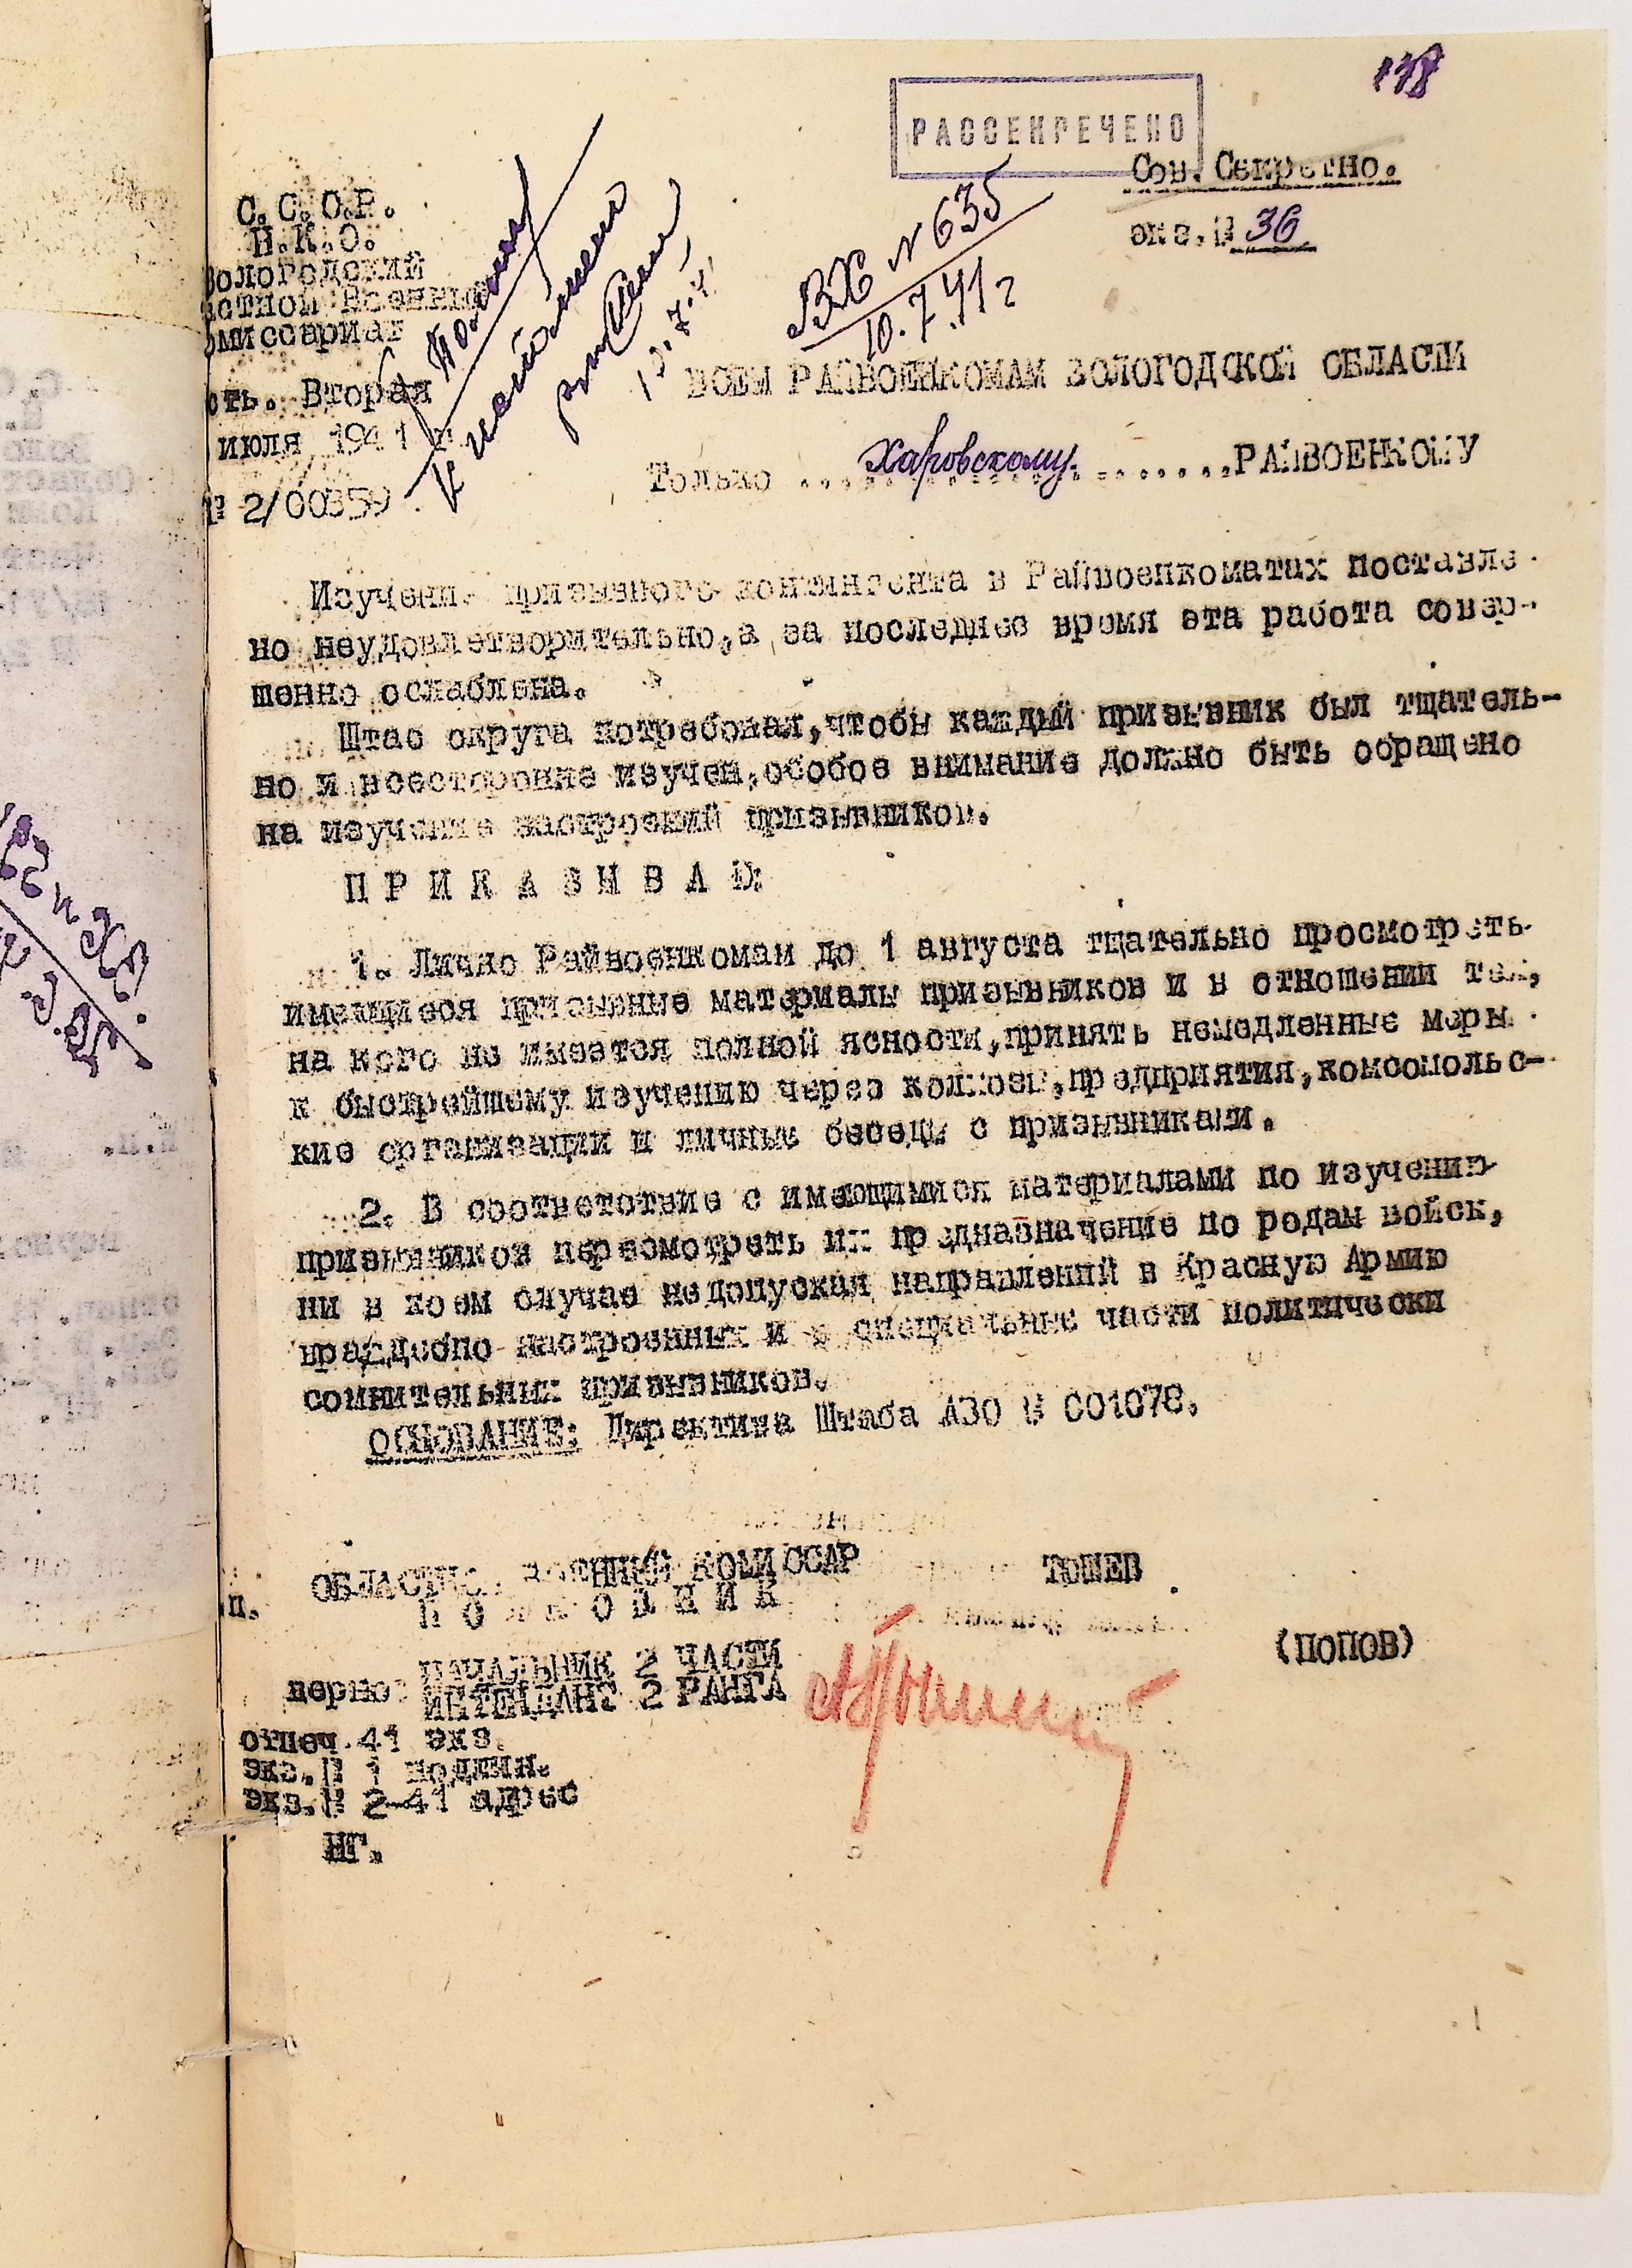 138
РАССЕКРЕЧЕНО
Сов. Секретно.
экз.№ 36
С.С.С.Р.
Н.К.О.
Вологодский
стной Военный
омиссариат
сть. Вторая
июля 1941 г.
№ 2/00359
ВХ № 635
10.7.41 г
ВСЕМ РАЙВОЕНКОМАМ ВОЛОГОДСКОЙ ОБЛАСТИ
Только Харовскому ........РАЙВОЕНКОМУ
Изучение призывного контингента в Райвоенкоматах поставле-
но неудовлетворительно,а за последнее время эта работа совер-
шенно ослаблена.
Штаб округа потребовал,чтобы каждый призывник был тщатель-
но и всесторонне изучен,особое внимание должно быть обращено
на изучение настроений призывников.
П Р И К А З Ы В А Ю:
1. Лично Райвоенкомам до 1 августа тщательно просмотреть
имеющиеся призывные материалы призывников и в отношении тех,
на кого не имеется полной ясности,принять немедленные меры
к быстрейшему изучению через колхозы,предприятия,комсомольс-
кие организации и личные беседы с призывниками.
2. В соответствие с имеющимися материалами по изучению
призывников пересмотреть их предназначение по родам войск,
ни в коем случае недопуская направлений в Красную Армию
враждебно настроенных и в специальные части политически
сомнительных призывников.
ОСНОВАНИЕ: Директива Штаба АВО № 001078.
ОБЛАСТНОЙ ВОЕННЫЙ КОМИССАР
П О Л К О В Н И К ТОШЕВ
п.
НАЧАЛЬНИК 2 ЧАСТИ
верно: ИНТЕНДАНТ 2 РАНГА (ПОПОВ)
отпеч.41 экз.
экз.№ 1 подлин.
экз.№ 2-41 адрес
НГ.